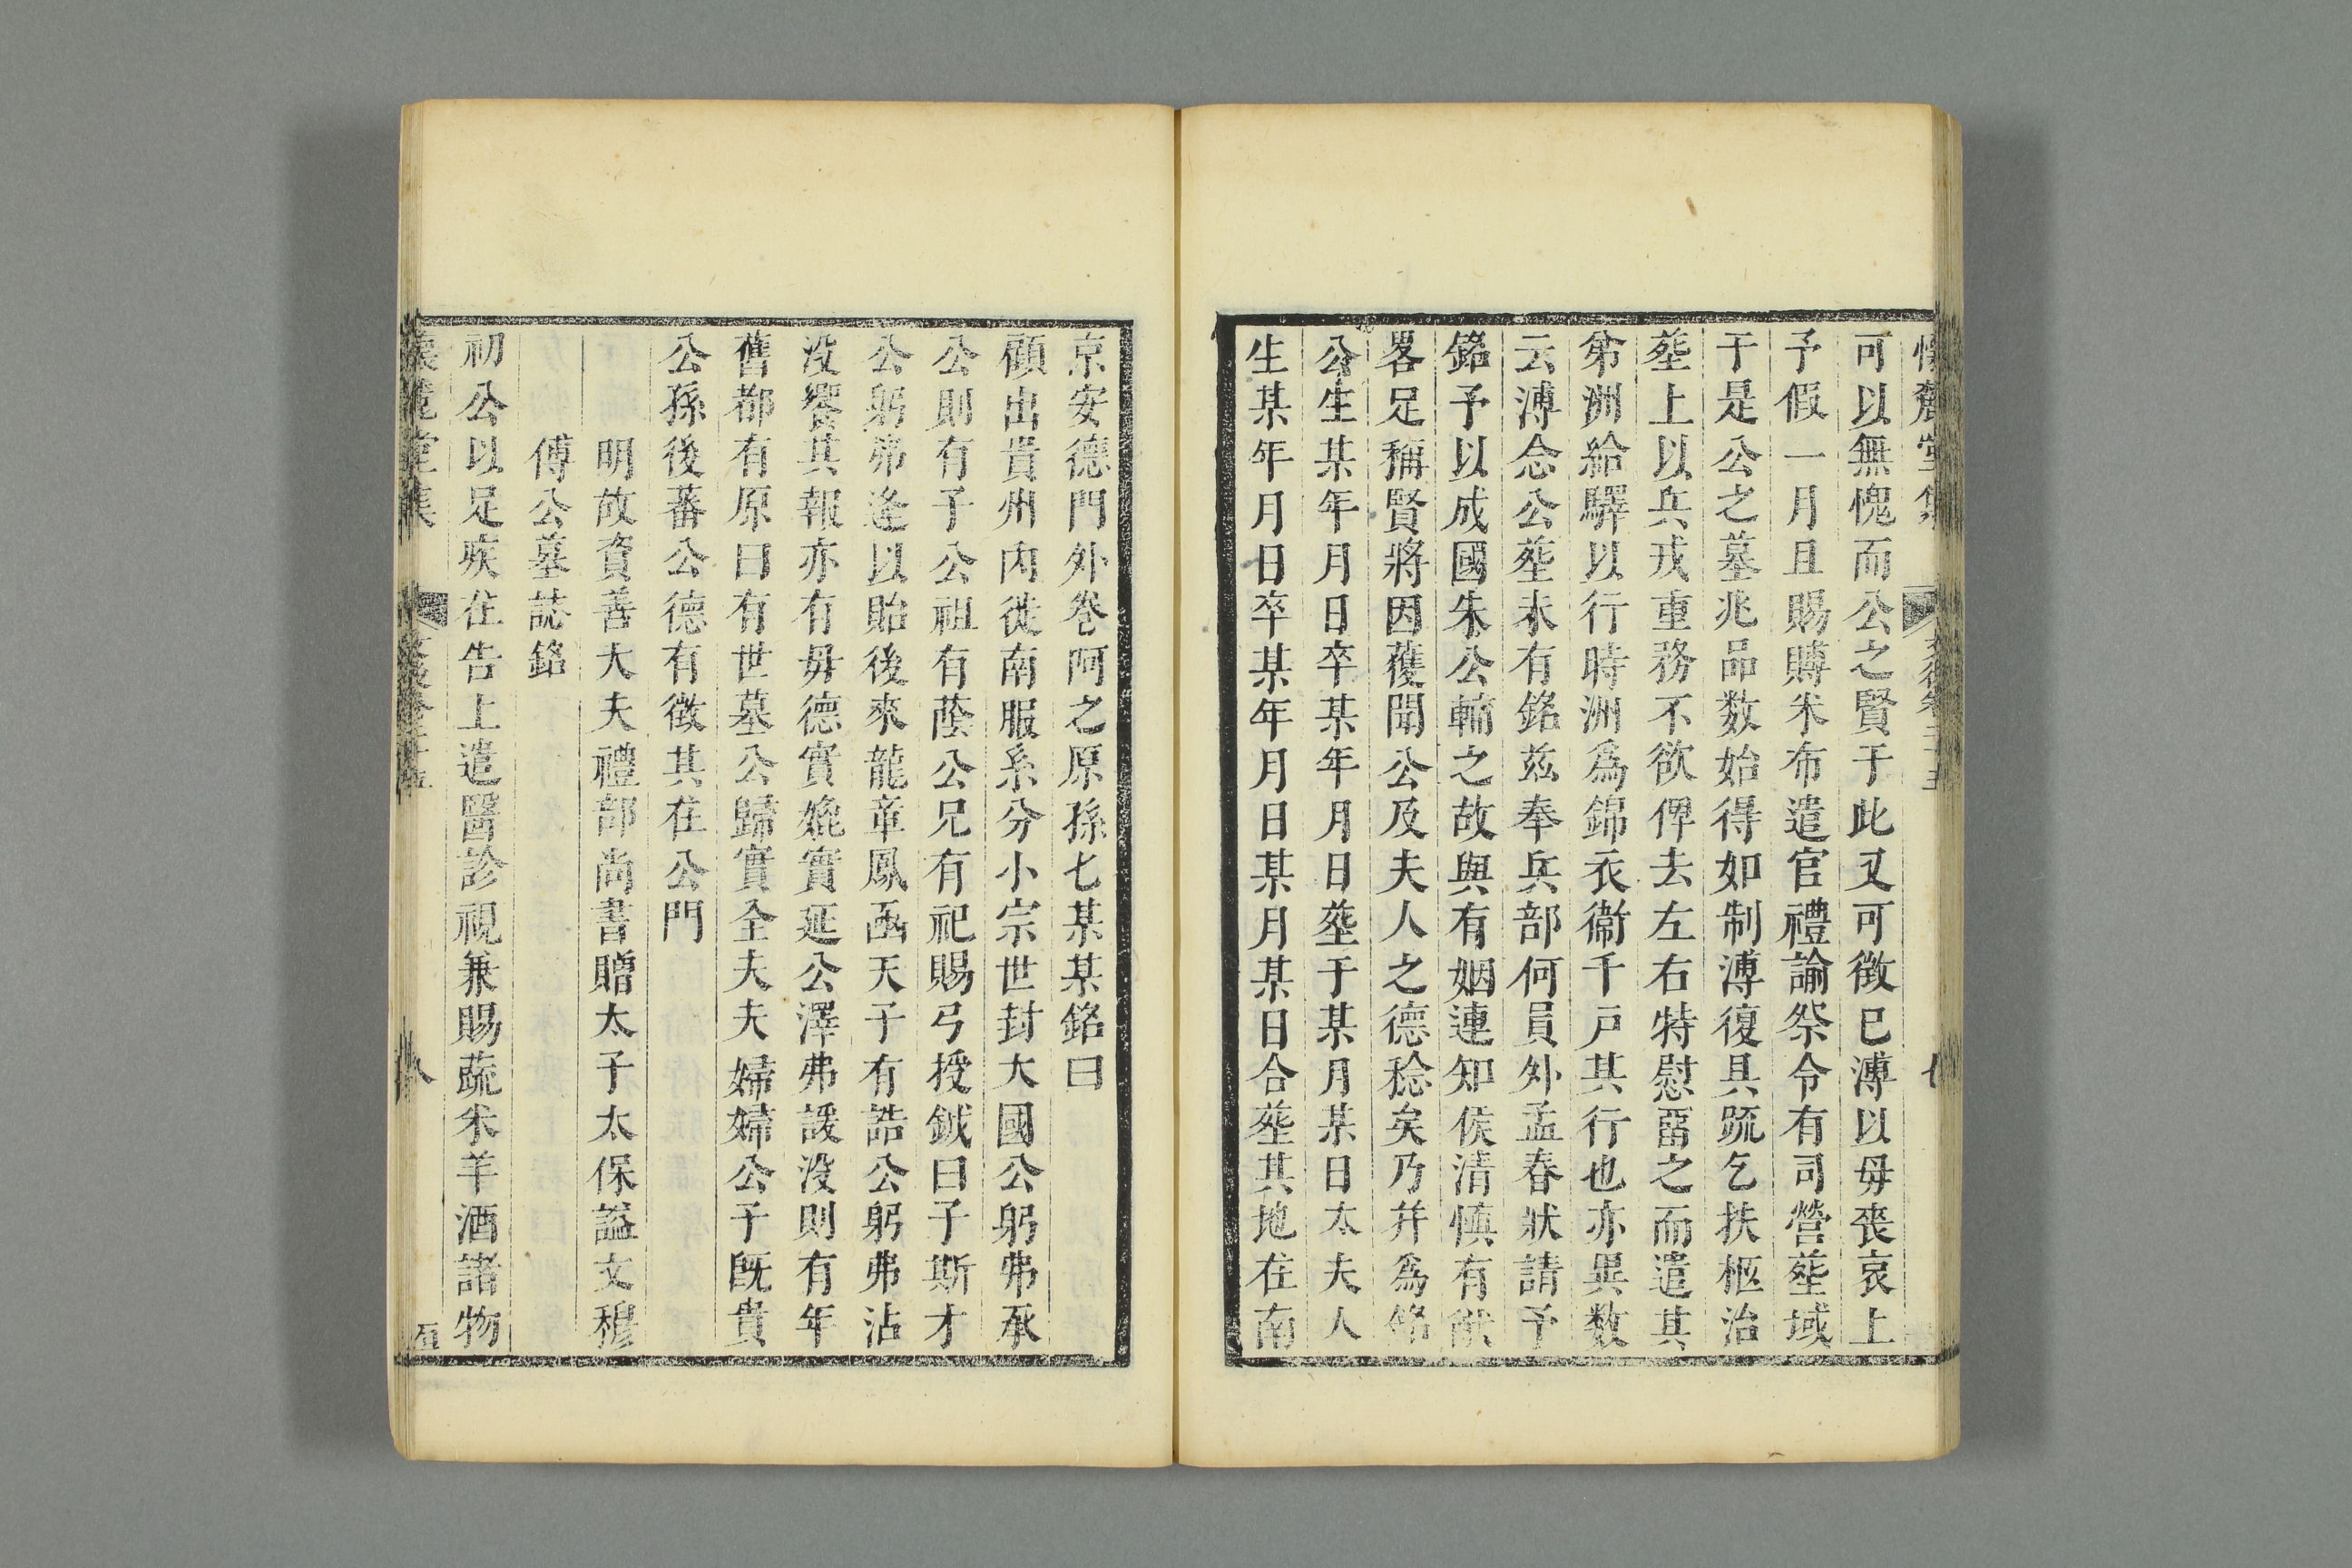 懷麓堂集
可以無愧而公之賢于此又可徵已溥以毋喪哀上
予假一月且賜賻米布遣官禮諭祭令有司營塟域
于是公之墓兆品数始得如制溥復具䟽乞扶柩治
塟上以兵戎重務不欲俾去左右特慰畱之而遣其
第洲給驛以行時洲爲錦衣衞千戸其行也亦異数
云溥念公塟未有銘兹奉兵部何員外孟春狀請予
銘予以成國朱公輔之故與有姻連知侯清慎有猷
畧足稱賢將因穫聞公及夫人之德稔矣乃幷爲銘
公生某年月日卒某年月日塟于某月某日太夫人
生某年月日卒某年月日某月某日合塟其地在南
京安德門外巻阿之原孫七某某銘曰
顧出貴州內徙南服系分小宗世封大國公躬弗承
公則有子公祖有蔭公兄有祀賜弓授鉞曰子斯才
公躬弗逢以貽後來龍章鳳函天子有誥公躬弗沾
没饗其報亦有毋德實媲實延公澤弗諼没則有年
舊都有原曰有世墓公歸實全夫夫婦婦公子旣貴
公孫後蕃公德有徵其在公門
明故資善大夫禮部尚書贈太子太保謚文穆
傅公墓誌銘
初公以足疾在告上遣醫診視兼賜蔬米羊酒諸物
堂集
八